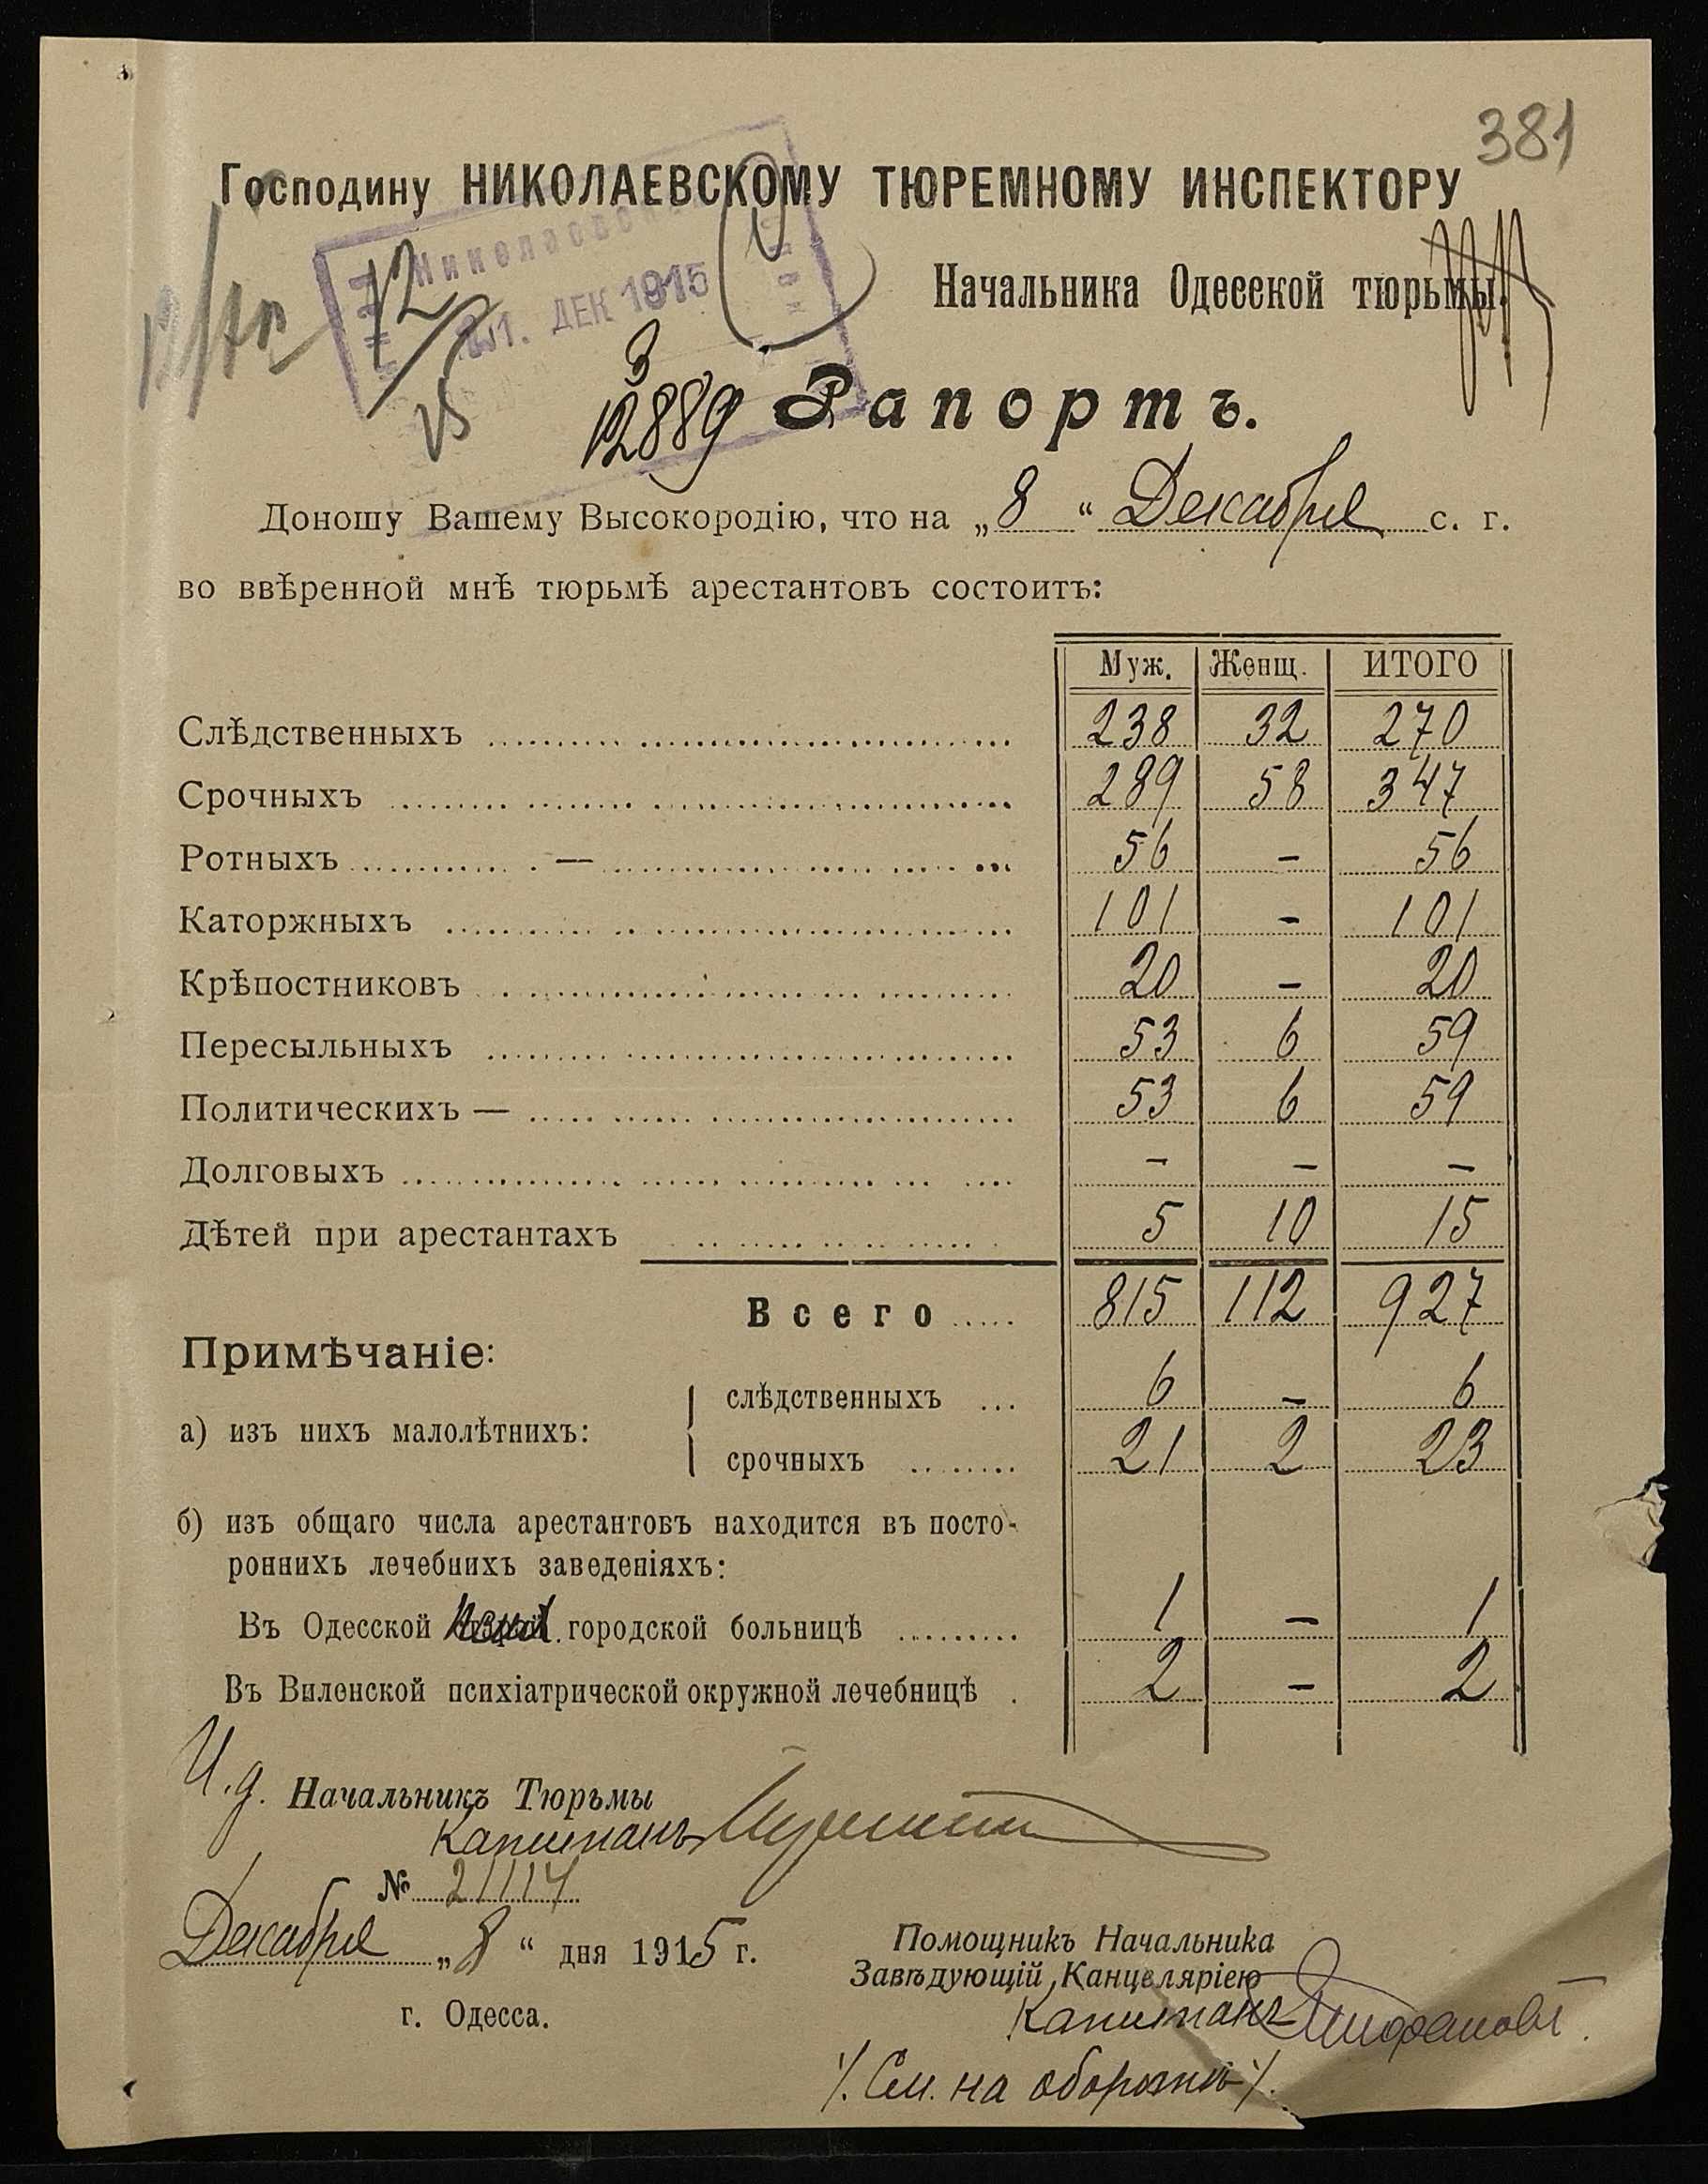 381
Господину НИКОЛАЕВСКОМУ ТЮРЕМНОМУ ИНСПЕКТОРУ
Начальника Одесской тюрьмы.
ДЕК 1915
12
12889
Рапортъ.
Доношу Вашему Высокородію, что на „8“ Декабря с. г.
во ввѣренной мнѣ тюрьмѣ арестантовъ состоитъ:
Муж. Женщ. ИТОГО
Слѣдственныхъ 238 32 270
Срочныхъ 289 58 347
Ротныхъ — 56 - 56
Каторжныхъ 101 - 101
Крѣпостниковъ 20 - 20
Пересыльныхъ 53 6 59
Политическихъ — 53 6 59
Долговыхъ - - -
Дѣтей при арестантахъ 5 10 15
Всего 815 112 927
Примѣчаніе:
а) изъ нихъ малолѣтнихъ:
слѣдственныхъ 6 - 6
срочныхъ 21 2 23
б) изъ общаго числа арестантовъ находится въ посто-
роннихъ лечебнихъ заведеніяхъ:
Въ Одесской городской больницѣ 1 - 1
Въ Виленской психіатрической окружной лечебницѣ 2 - 2
И.д. Начальникъ Тюрьмы
Капитанъ
№ 21117
Декабря „8“ дня 1915 г.
г. Одесса.
Помощникъ Начальника
Завѣдующій Канцеляріею
Капитанъ
/. См. на оборотѣ /.